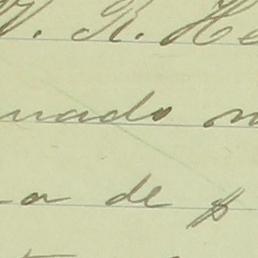 W. R. He
nado n
a de p